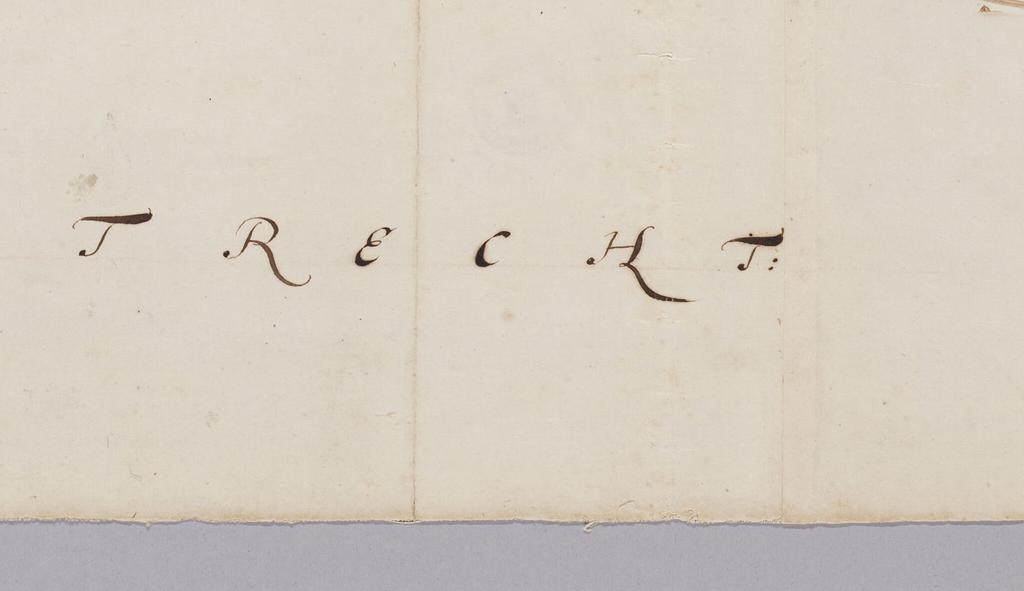 T R E C H T: